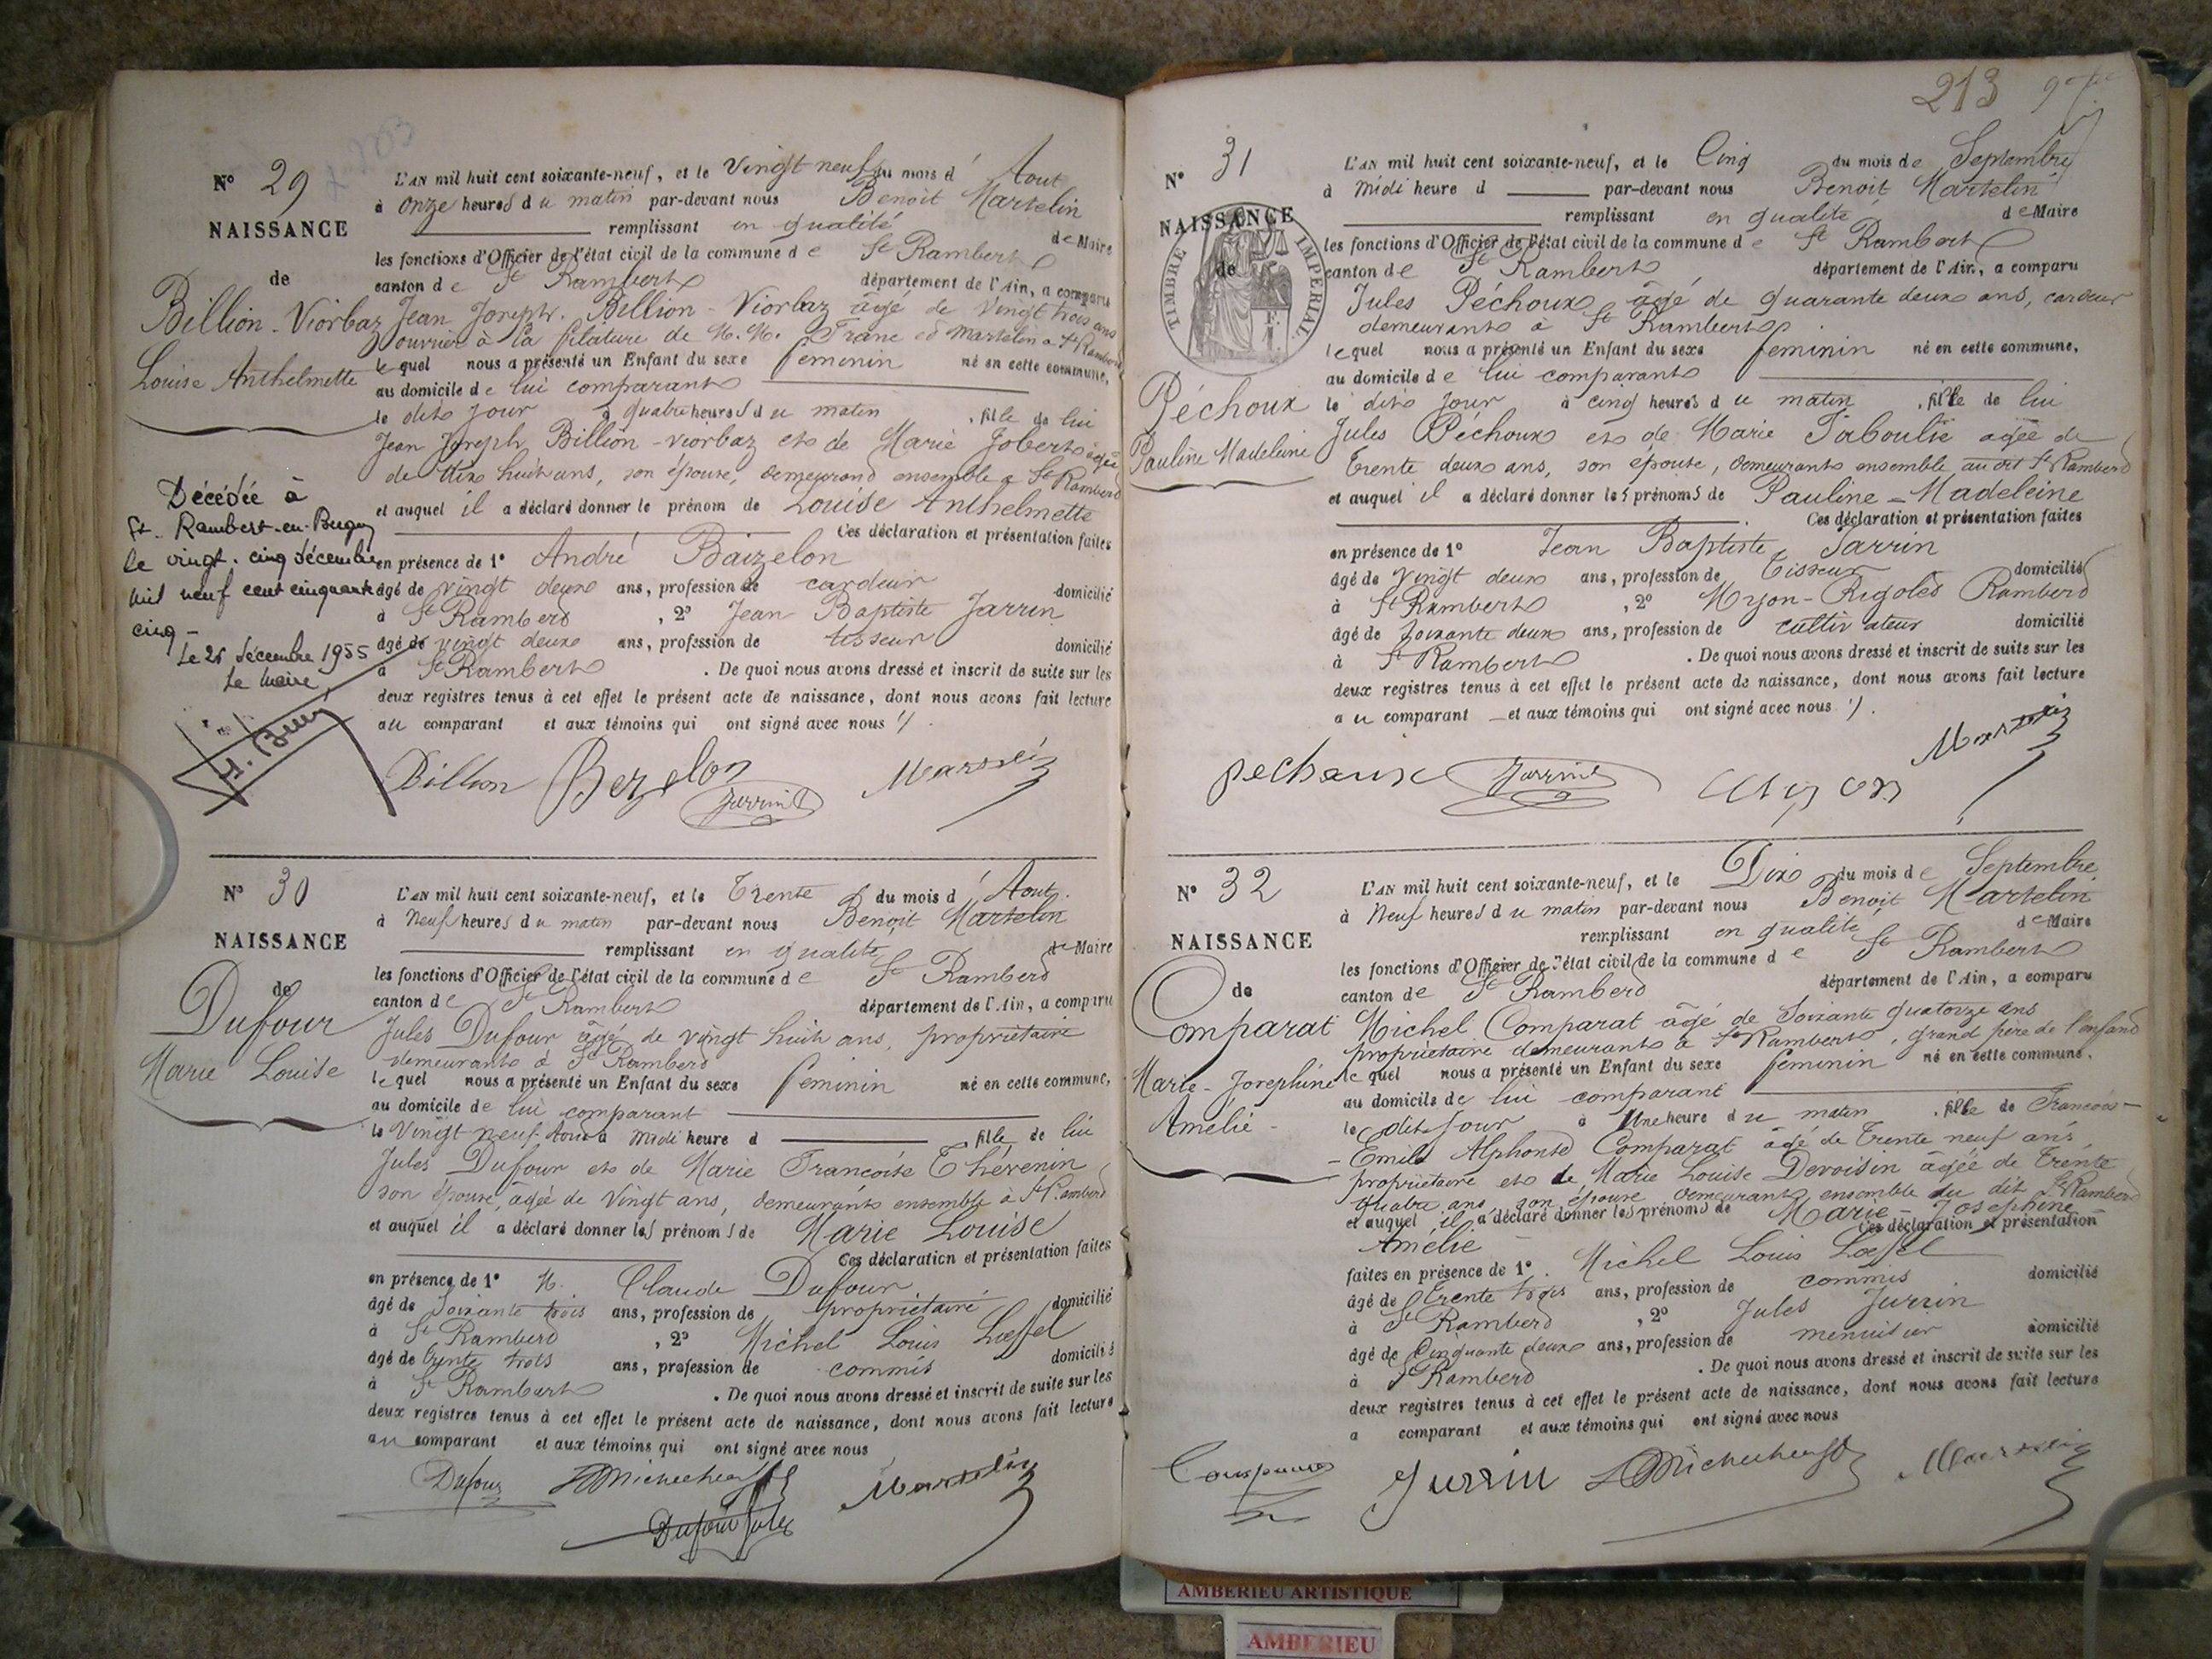 N° 29
NAISSANCE
de
Billion-Viorbaz
Louise Anthelmette
Décédée à
St. Rambert-en-Bugey
le vingt-cinq décembre
mil neuf cent cinquante
cinq -
Le 26 décembre 1955
Le Maire
L'AN mil huit cent soixante-neuf, et le Vingt neuf du mois d' Aout
à onze heures du matin par-devant nous Benoit Martelin
remplissant en qualité de Maire
les fonctions d'Officier de l'état civil de la commune de St Rambert
canton de St Rambert département de l'Ain, a comparu
Jean Joseph Billion-Viorbaz âgé de Vingt trois ans
ouvrier à la filature de M. M. Franc et Martelin à St Rambert
lequel nous a présenté un Enfant du sexe féminin né en cette commune,
au domicile de lui comparant
le dit jour à quatre heures du matin, fille de lui
Jean Joseph Billion-viorbaz et de Marie Jobert âgée
de dix huit ans, son épouse, demeurand ensemble a St Rambert
et auquel il a déclaré donner le prénom de Louise Anthelmette
Ces déclaration et présentation faites
en présence de 1° André Baizelon
âgé de vingt deux ans, profession de cardeur domicilié
à St Rambert, 2° Jean Baptiste Jarrin
âgé de vingt deux ans, profession de tisseur domicilié
à St Rambert. De quoi nous avons dressé et inscrit de suite sur les
deux registres tenus à cet effet le présent acte de naissance, dont nous avons fait lecture
au comparant et aux témoins qui ont signé avec nous
Billion Bezelon Jarrin Martelin
N° 30
NAISSANCE
de
Dufour
Marie Louise
L'AN mil huit cent soixante-neuf, et le Trente du mois d' Aout
à Neuf heures du matin par-devant nous Benoit Martelin
remplissant en qualité de Maire
les fonctions d'Officier de l'état civil de la commune de St Rambert
canton de St Rambert département de l'Ain, a comparu
Jules Dufour âgé de vingt huit ans, propriétaire
demeurant à St Rambert
lequel nous a présenté un Enfant du sexe féminin né en cette commune,
au domicile de lui comparant
le Vingt neuf Aout à midi heure d fille de lui
Jules Dufour et de Marie Françoise Thévenin
son épouse, âgée de Vingt ans, demeurants ensemble à St Rambert
et auquel il a déclaré donner les prénoms de Marie Louise
Ces déclaration et présentation faites
en présence de 1° M. Claude Dufour
âgé de soixante trois ans, profession de propriétaire domicilié
à St Rambert, 2° Michel Louis Loeffel
âgé de trente trois ans, profession de commis domicilié
à St Rambert. De quoi nous avons dressé et inscrit de suite sur les
deux registres tenus à cet effet le présent acte de naissance, dont nous avons fait lecture
au comparant et aux témoins qui ont signé avec nous
Dufour Martelin
Dufour Jules
213 97
N° 31
NAISSANCE
de
TIMBRE IMPERIAL
Péchoux
Pauline Madeleine
L'AN mil huit cent soixante-neuf, et le Cinq du mois de Septembre
à midi heure d par-devant nous Benoit Martelin
remplissant en qualité de Maire
les fonctions d'Officier de l'état civil de la commune de St Rambert
canton de St Rambert département de l'Ain, a comparu
Jules Péchoux âgé de quarante deux ans, cardeur
demeurant à St Rambert
lequel nous a présenté un Enfant du sexe féminin né en cette commune,
au domicile de lui comparant
le dit jour à cinq heures du matin, fille de lui
Jules Péchoux et de Marie Taboulie âgée de
Trente deux ans, son épouse, demeurants ensemble au dit St Rambert
et auquel il a déclaré donner les prénoms de Pauline-Madeleine
Ces déclaration et présentation faites
en présence de 1° Jean Baptiste Jarrin
âgé de vingt deux ans, profession de tisseur domicilié
à St Rambert, 2° Myon-Rigolet Rambert
âgé de soixante deux ans, profession de cultivateur domicilié
à St Rambert. De quoi nous avons dressé et inscrit de suite sur les
deux registres tenus à cet effet le présent acte de naissance, dont nous avons fait lecture
au comparant et aux témoins qui ont signé avec nous
pechoux Jarrin Myon Martelin
N° 32
NAISSANCE
de
Comparat
Marie-Joséphine
Amélie-
L'AN mil huit cent soixante-neuf, et le Dix du mois de Septembre
à Neuf heures du matin par-devant nous Benoit Martelin
remplissant en qualité de Maire
les fonctions d'Officier de l'état civil de la commune de St Rambert
canton de St Rambert département de l'Ain, a comparu
Michel Comparat âgé de Soixante quatorze ans
propriétaire demeurant à St Rambert, grand père de l'enfant
lequel nous a présenté un Enfant du sexe féminin né en cette commune,
au domicile de lui comparant
le dit jour à Une heure du matin, fille de François-
-Emile Alphonse Comparat âgé de Trente neuf ans,
propriétaire et de Marie Louise Devoisin âgée de Trente
quatre ans, son épouse demeurant ensemble au dit St Rambert
et auquel il a déclaré donner les prénoms de Marie-Joséphine-
Amélie Ces déclaration et présentation
faites en présence de 1° Michel Louis Loeffel
âgé de Trente trois ans, profession de commis domicilié
à St Rambert, 2° Jules Jurrin
âgé de Cinquante deux ans, profession de menuisier domicilié
à St Rambert. De quoi nous avons dressé et inscrit de suite sur les
deux registres tenus à cet effet le présent acte de naissance, dont nous avons fait lecture
a comparant et aux témoins qui ont signé avec nous
Comparat Jurrin Martelin
AMBERIEU ARTISTIQUE
AMBERIEU